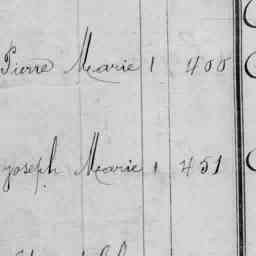 Pierre Marie 1 400
Joseph Marie 1 451